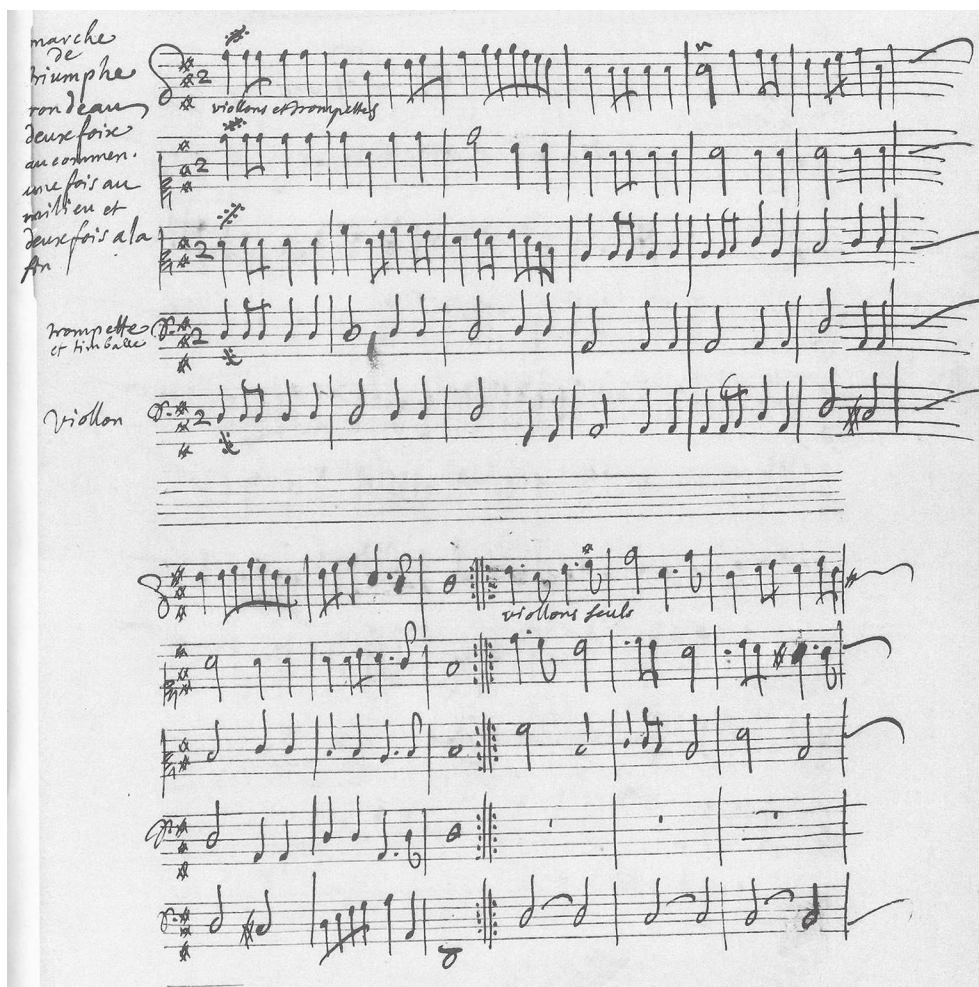 marche
de
triumphe
rondeau
deux foix
au commen.
une fois au
milieu et
deux fois a la
fin
2
viollons et trompettes
2
2
trompette
et timballe
2
viollon
2
viollons seuls